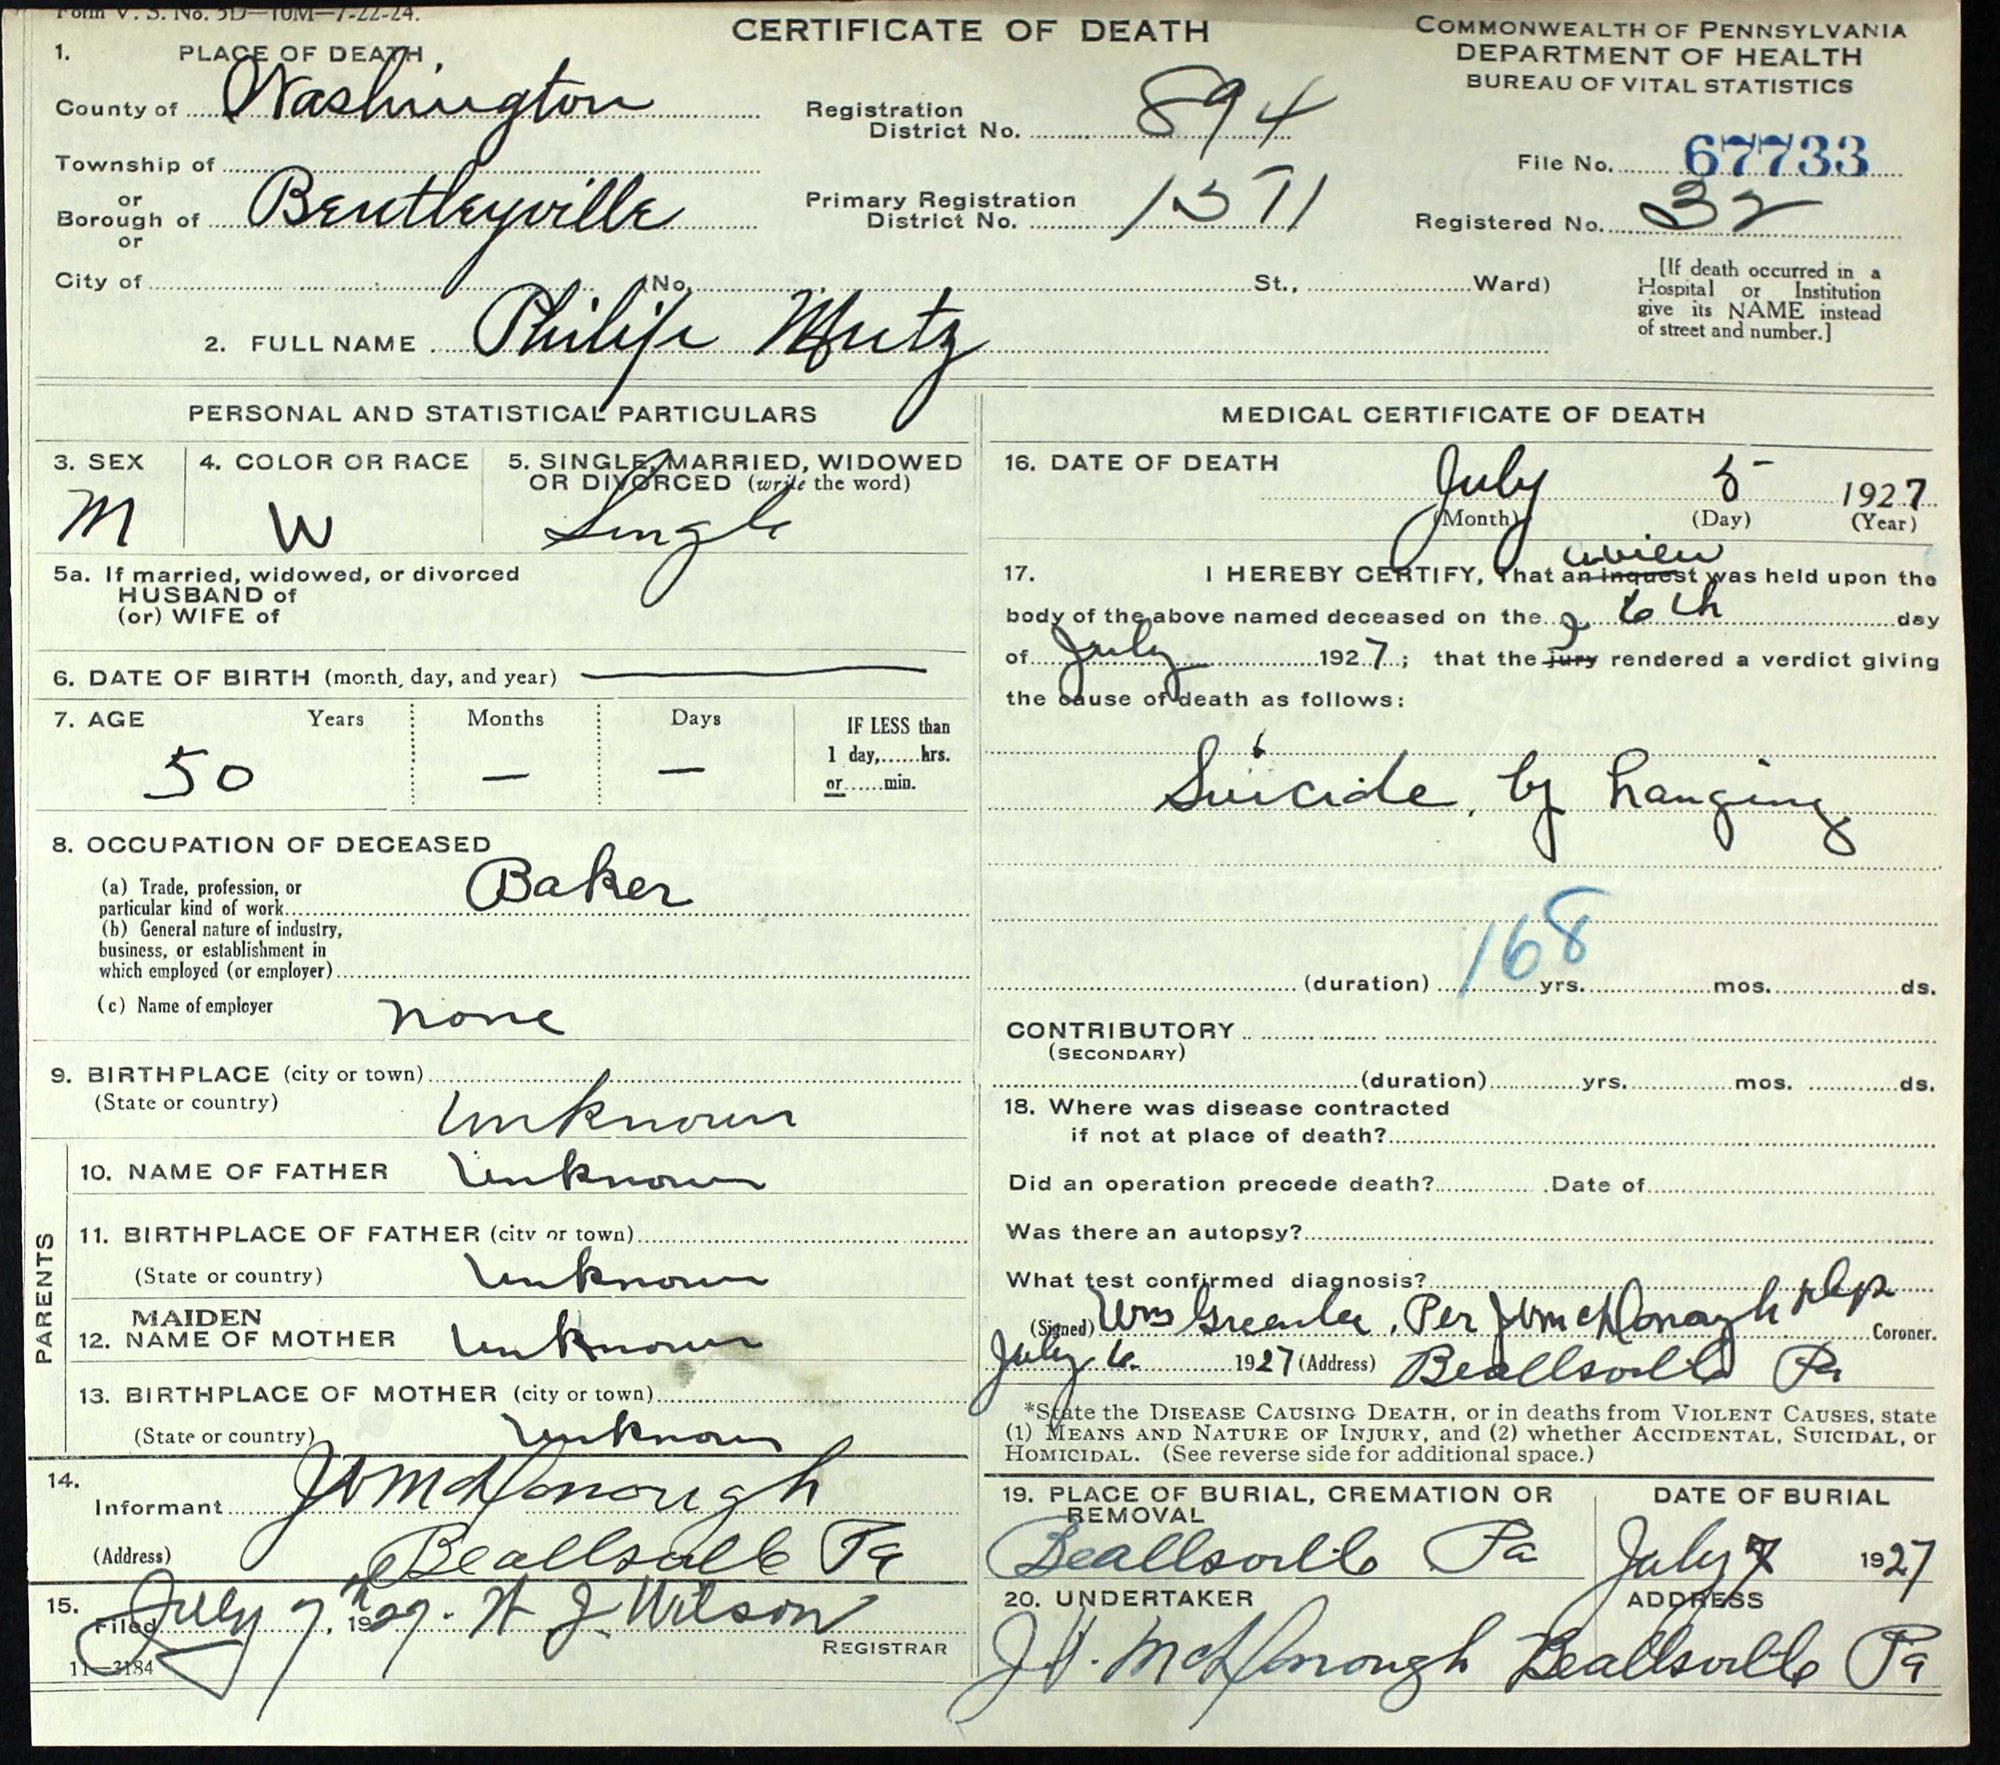 Form V. S. No. 5D—10M—7-22-24.
CERTIFICATE OF DEATH
COMMONWEALTH OF PENNSYLVANIA
DEPARTMENT OF HEALTH
BUREAU OF VITAL STATISTICS
1. PLACE OF DEATH
County of Washington
Registration District No. 894
File No. 67733
Township of
or
Borough of Bentleyville
or
Primary Registration District No. 1371
Registered No. 32
City of (No. St., Ward)
[If death occurred in a
Hospital or Institution
give its NAME instead
of street and number.]
2. FULL NAME Philip Mutz
PERSONAL AND STATISTICAL PARTICULARS
3. SEX
M
4. COLOR OR RACE
W
5. SINGLE, MARRIED, WIDOWED
OR DIVORCED (write the word)
Single
5a. If married, widowed, or divorced
HUSBAND of
(or) WIFE of
6. DATE OF BIRTH (month, day, and year) —
7. AGE Years Months Days
50 — —
IF LESS than
1 day,......hrs.
or......min.
8. OCCUPATION OF DECEASED
(a) Trade, profession, or
particular kind of work Baker
(b) General nature of industry,
business, or establishment in
which employed (or employer)
(c) Name of employer none
9. BIRTHPLACE (city or town)
(State or country) unknown
PARENTS
10. NAME OF FATHER unknown
11. BIRTHPLACE OF FATHER (city or town)
(State or country) unknown
MAIDEN
12. NAME OF MOTHER unknown
13. BIRTHPLACE OF MOTHER (city or town)
(State or country) unknown
14.
Informant McDonough
(Address) Beallsville Pa
15.
Filed July 7th, 1927. J. Wilson
REGISTRAR
11—3184
MEDICAL CERTIFICATE OF DEATH
16. DATE OF DEATH July 5 1927
(Month) (Day) (Year)
a view
17. I HEREBY CERTIFY, That an inquest was held upon the
body of the above named deceased on the 6th day
of July 1927; that the jury rendered a verdict giving
the cause of death as follows:
Suicide, by hanging
168
(duration) yrs. mos. ds.
CONTRIBUTORY
(SECONDARY)
(duration) yrs. mos. ds.
18. Where was disease contracted
if not at place of death?
Did an operation precede death? Date of
Was there an autopsy?
What test confirmed diagnosis?
(Signed) Wm Greenlee, Per McDonough Dep Coroner.
July 6 1927 (Address) Beallsville Pa
*State the DISEASE CAUSING DEATH, or in deaths from VIOLENT CAUSES, state
(1) MEANS AND NATURE OF INJURY, and (2) whether ACCIDENTAL, SUICIDAL, or
HOMICIDAL. (See reverse side for additional space.)
19. PLACE OF BURIAL, CREMATION OR
REMOVAL
Beallsville Pa
DATE OF BURIAL
July 7 1927
20. UNDERTAKER
McDonough
ADDRESS
Beallsville Pa